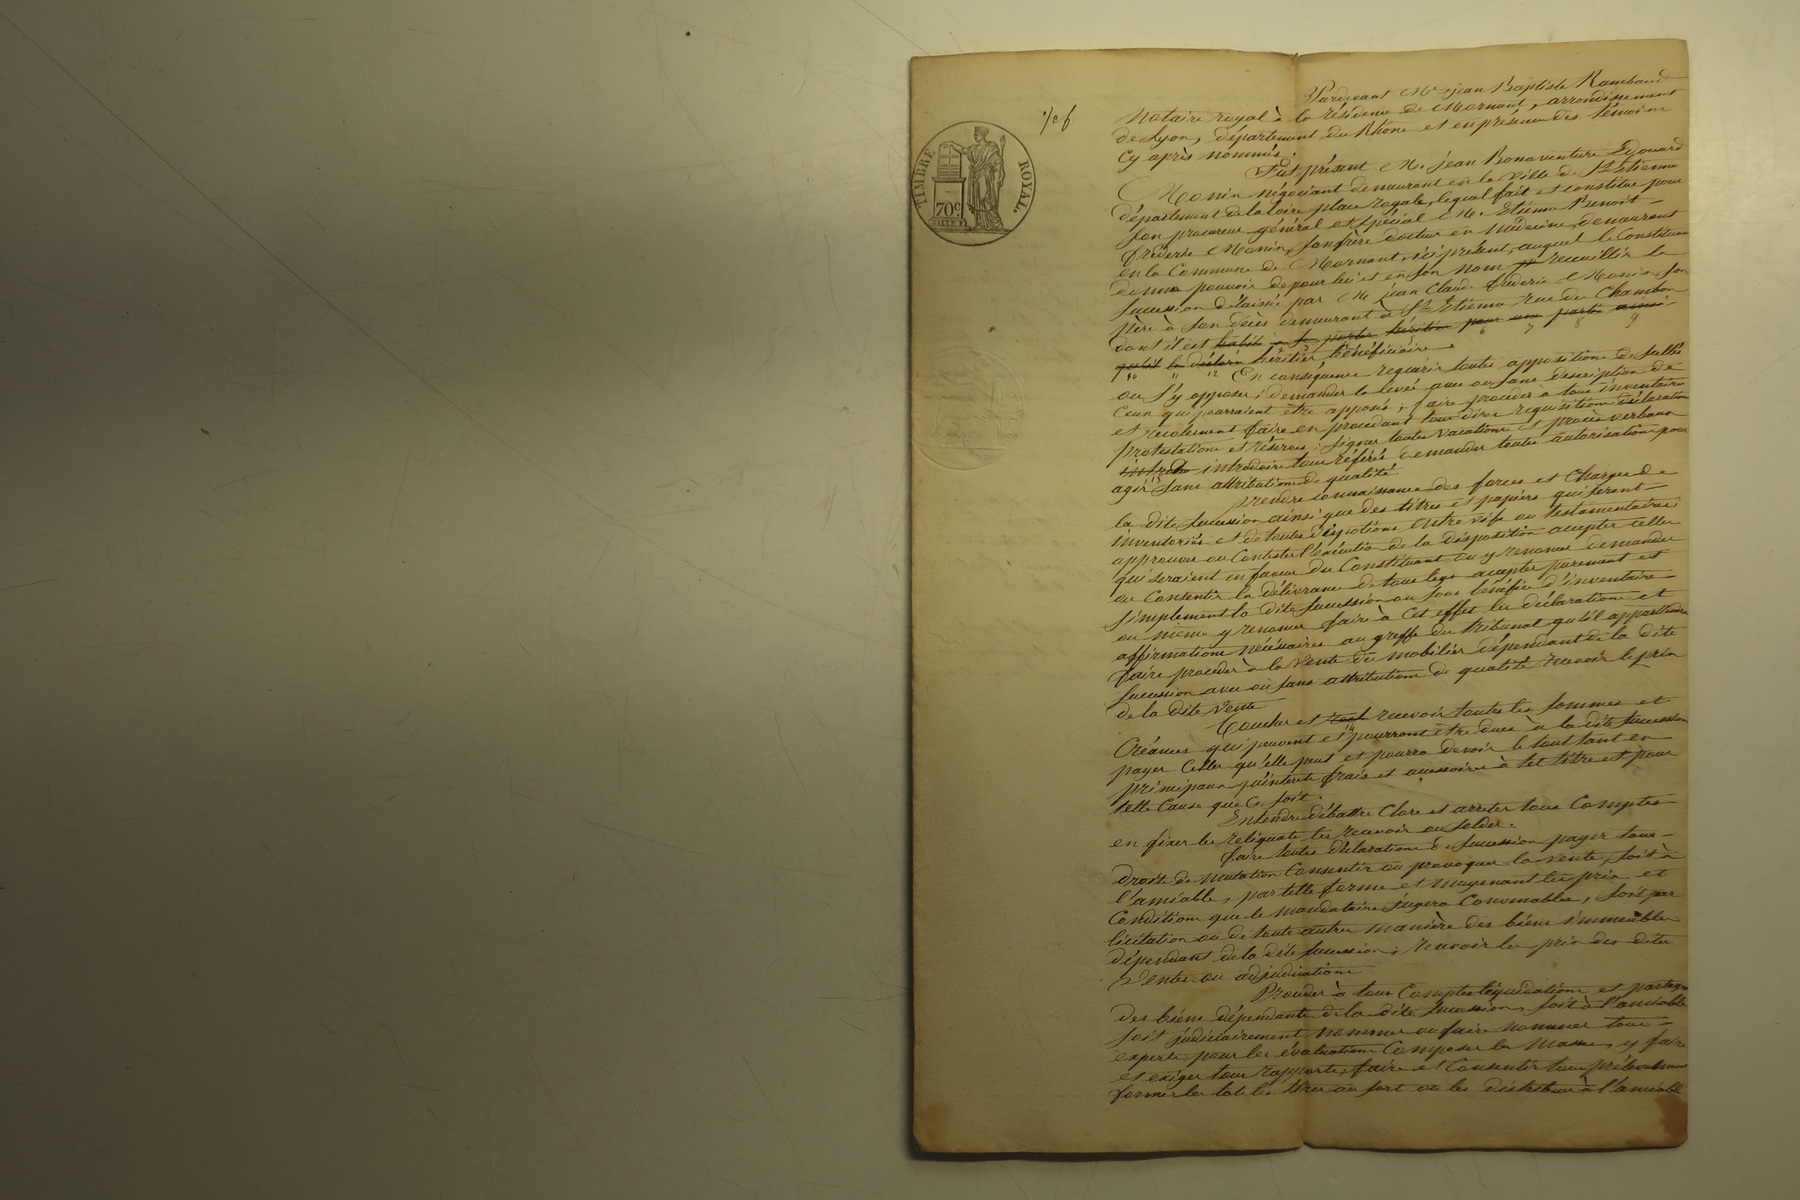 Pardevant Me jean Baptiste Rambaud
Notaire royal à la résidence de Mornant, arrondissement
de Lyon, département du Rhône et en présence des témoins
Cy après nommés.
Fut présent M. jean Bonaventure Edouard
Monin négociant demeurant en la ville de St Etienne
département de la Loire place royale, lequel fait et constitue pour
son procureur général et spécial M. Etienne Benoit
fréderic Monin, son frère docteur en médecine, demeurant
en la Commune de Mornant, ici présent, auquel le Constituant
donne pouvoir de pour lui et en son nom recueillir la
succession délaissée par M. jean Claude fréderic Monin, son
père à son décès demeurant à St Etienne rue du Chambon
dont il est habile à se porter héritier pour une partie ainsi
6 7 8 9
qu'il le déclare héritier bénéficiaire.
10 11 12 En conséquence requérir toutes appositions de scellés
ou s'y opposer; demander la levée avec ou sans description de
Ceux qui pourraient être apposés; faire procéder à tous inventaires
et récolement faire en procédant tous dires réquisitions déclarations
protestations et réserves; signer toutes vacations et procès verbaux
introduire tous référés demander toutes autorisations pour
agir sans attributions de qualité
prendre connaissance des forces et Charges de
la dite succession ainsi que des titres et papiers qui seront
inventoriés et de toutes dispotions entre vifs ou testamentaires
approuver ou Contester l'exécution de la disposition accepter celles
qui seraient en faveur du Constituant ou y renoncer demander
ou Consentir la délivrance de tous legs accepter purement et
simplement la dite succession ou sous bénéfice d'inventaire
ou même y renoncer faire à Cet effet les déclarations et
affirmations nécessaires au greffe du tribunal qu'il appartiendra
faire procéder à la vente du mobilier dépendant de la dite
succession avec ou sans attributions de qualité recevoir le prix
de la dite vente
Toucher et recevoir toutes les sommes et
14
Créances qui peuvent et pourront être dues à la dite succession
payer Celles qu'elle peut et pourra devoir le tout tant en
principaux qu'intérêts frais et accessoires à tel titre et pour
telle Cause que Ce soit.
Entendre débattre Clore et arrêter tous Comptes
en fixer les reliquats les recevoir ou solder.
faire toutes déclarations de succession payer tous
droits de mutation Consentir ou provoquer la vente, soit à
l'amiable, par telle forme et moyenant les prix et
Conditions que le mandataire jugera Convenables, soit par
licitation ou de toute autre manière des biens immeubles
dépendants de la dite succession; recevoir les prix des dites
Ventes ou adjudications
Procéder à tous Comptes liquidations et partages
des biens dépendants de la dite succession, soit à l'amiable
soit judiciairement Nommer ou faire nommer tous
experts pour les évaluations Composer les Masses, y faire
et exiger tous rapports, faire et Consentir tous prélèvements
former les lots les tirer au sort ou les distribuer à l'amiable
TIMBRE ROYAL.
70c